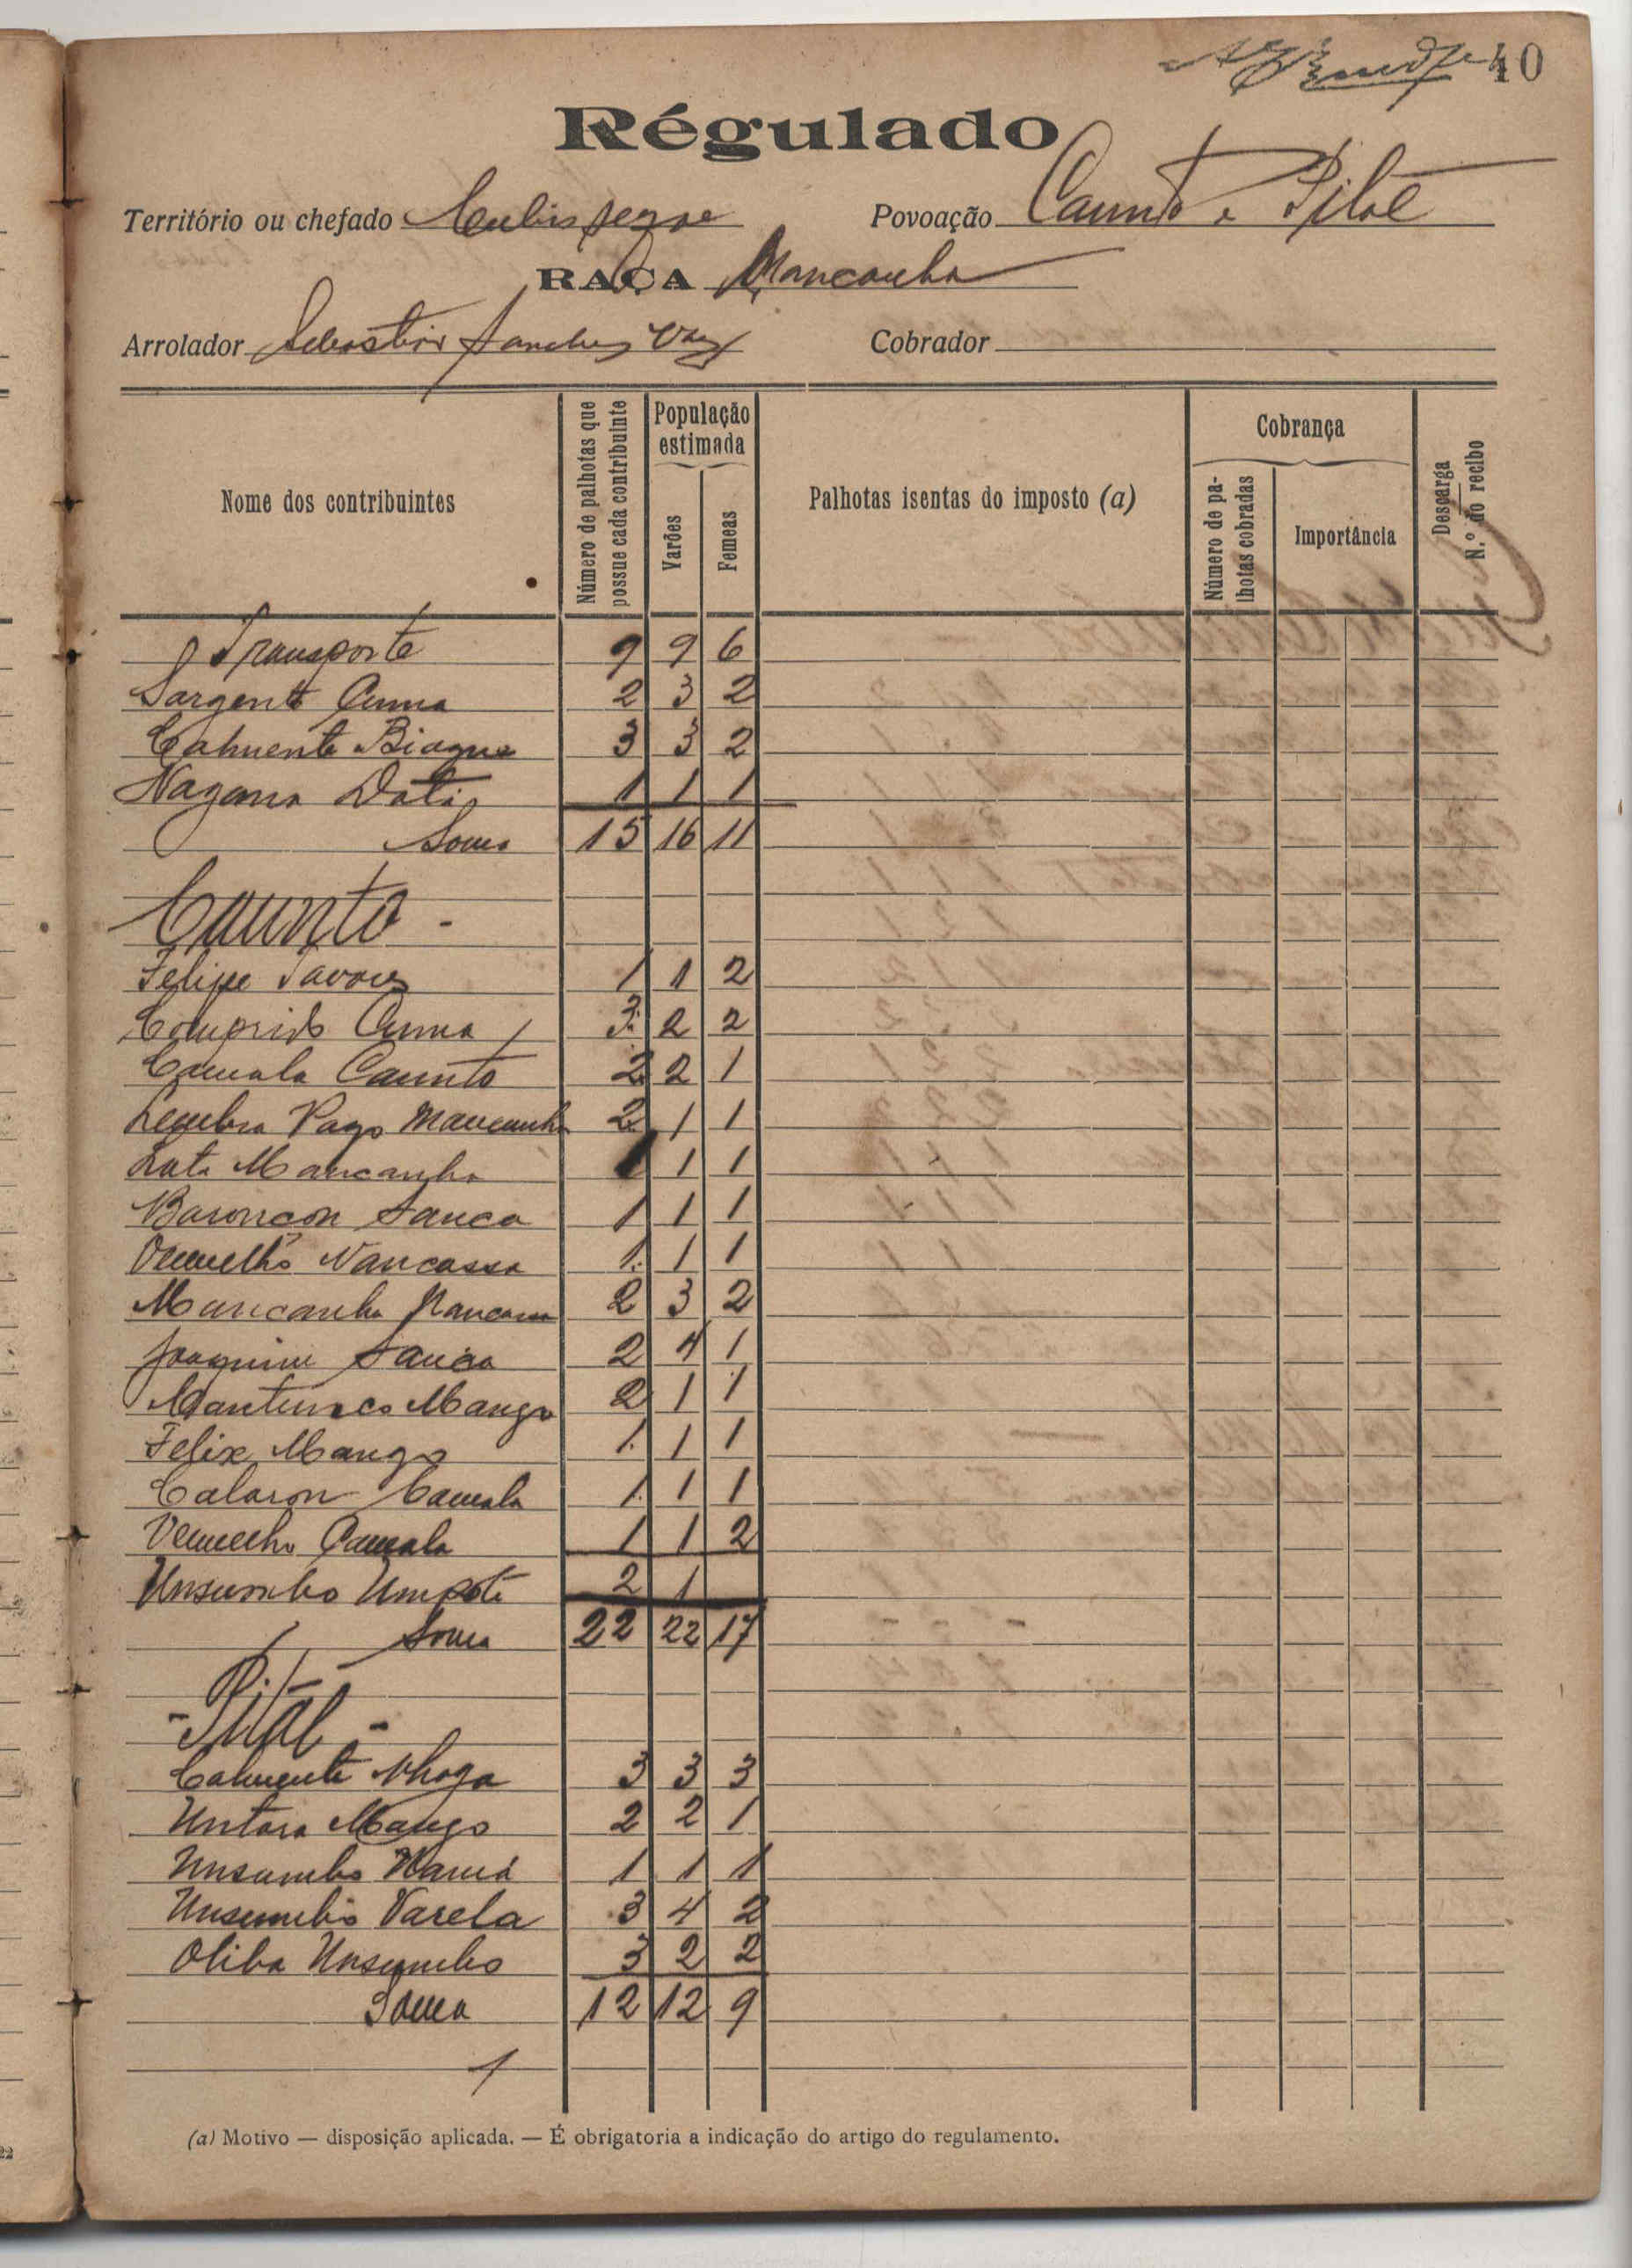 40
Régulado
Território ou chefado
Povoação Caunto e Pital
RAÇA Mancanha
Arrolador Sebastião Sanches Vaz Cobrador
Nome dos contribuintes
Número de palhotas que possue cada contribuinte
População estimada
Varões
Femeas
Palhotas isentas do imposto (a)
Cobrança
Número de palhotas cobradas
Importância
Descarga
N.º do recibo
Transporte 9 9 6
Sargento Cuma 2 3 2
Calmente Biagna 3 3 2
Nagana 1 1 1
Soma 15 16 11
Caunto -
Felipe Tavares 1 1 2
Comprido Cuma 3 2 2
Camala Caunto 2 2 1
Lembra Pago Mancanha 2 1 1
Luta Mancanha 1 1 1
Baronçon Sanca 1 1 1
Vermelho Nancassa 1 1 1
Mancanha 2 3 2
Joaquim Sanca 2 4 1
Mango 2 1 1
Felix Mango 1 1 1
Calaron Camala 1 1 1
Vermelho Camala 1 1 2
Unsumbo Umpoti 2 1
Soma 22 22 17
- Pital -
Calmente Nhaga 3 3 3
Untara Mango 2 2 1
Unsumbo Namá 1 1 1
Unsumbo Varela 3 4 2
Oliba Unsumbo 3 2 2
Soma 12 12 9
(a) Motivo — disposição aplicada. — É obrigatoria a indicação do artigo do regulamento.
22